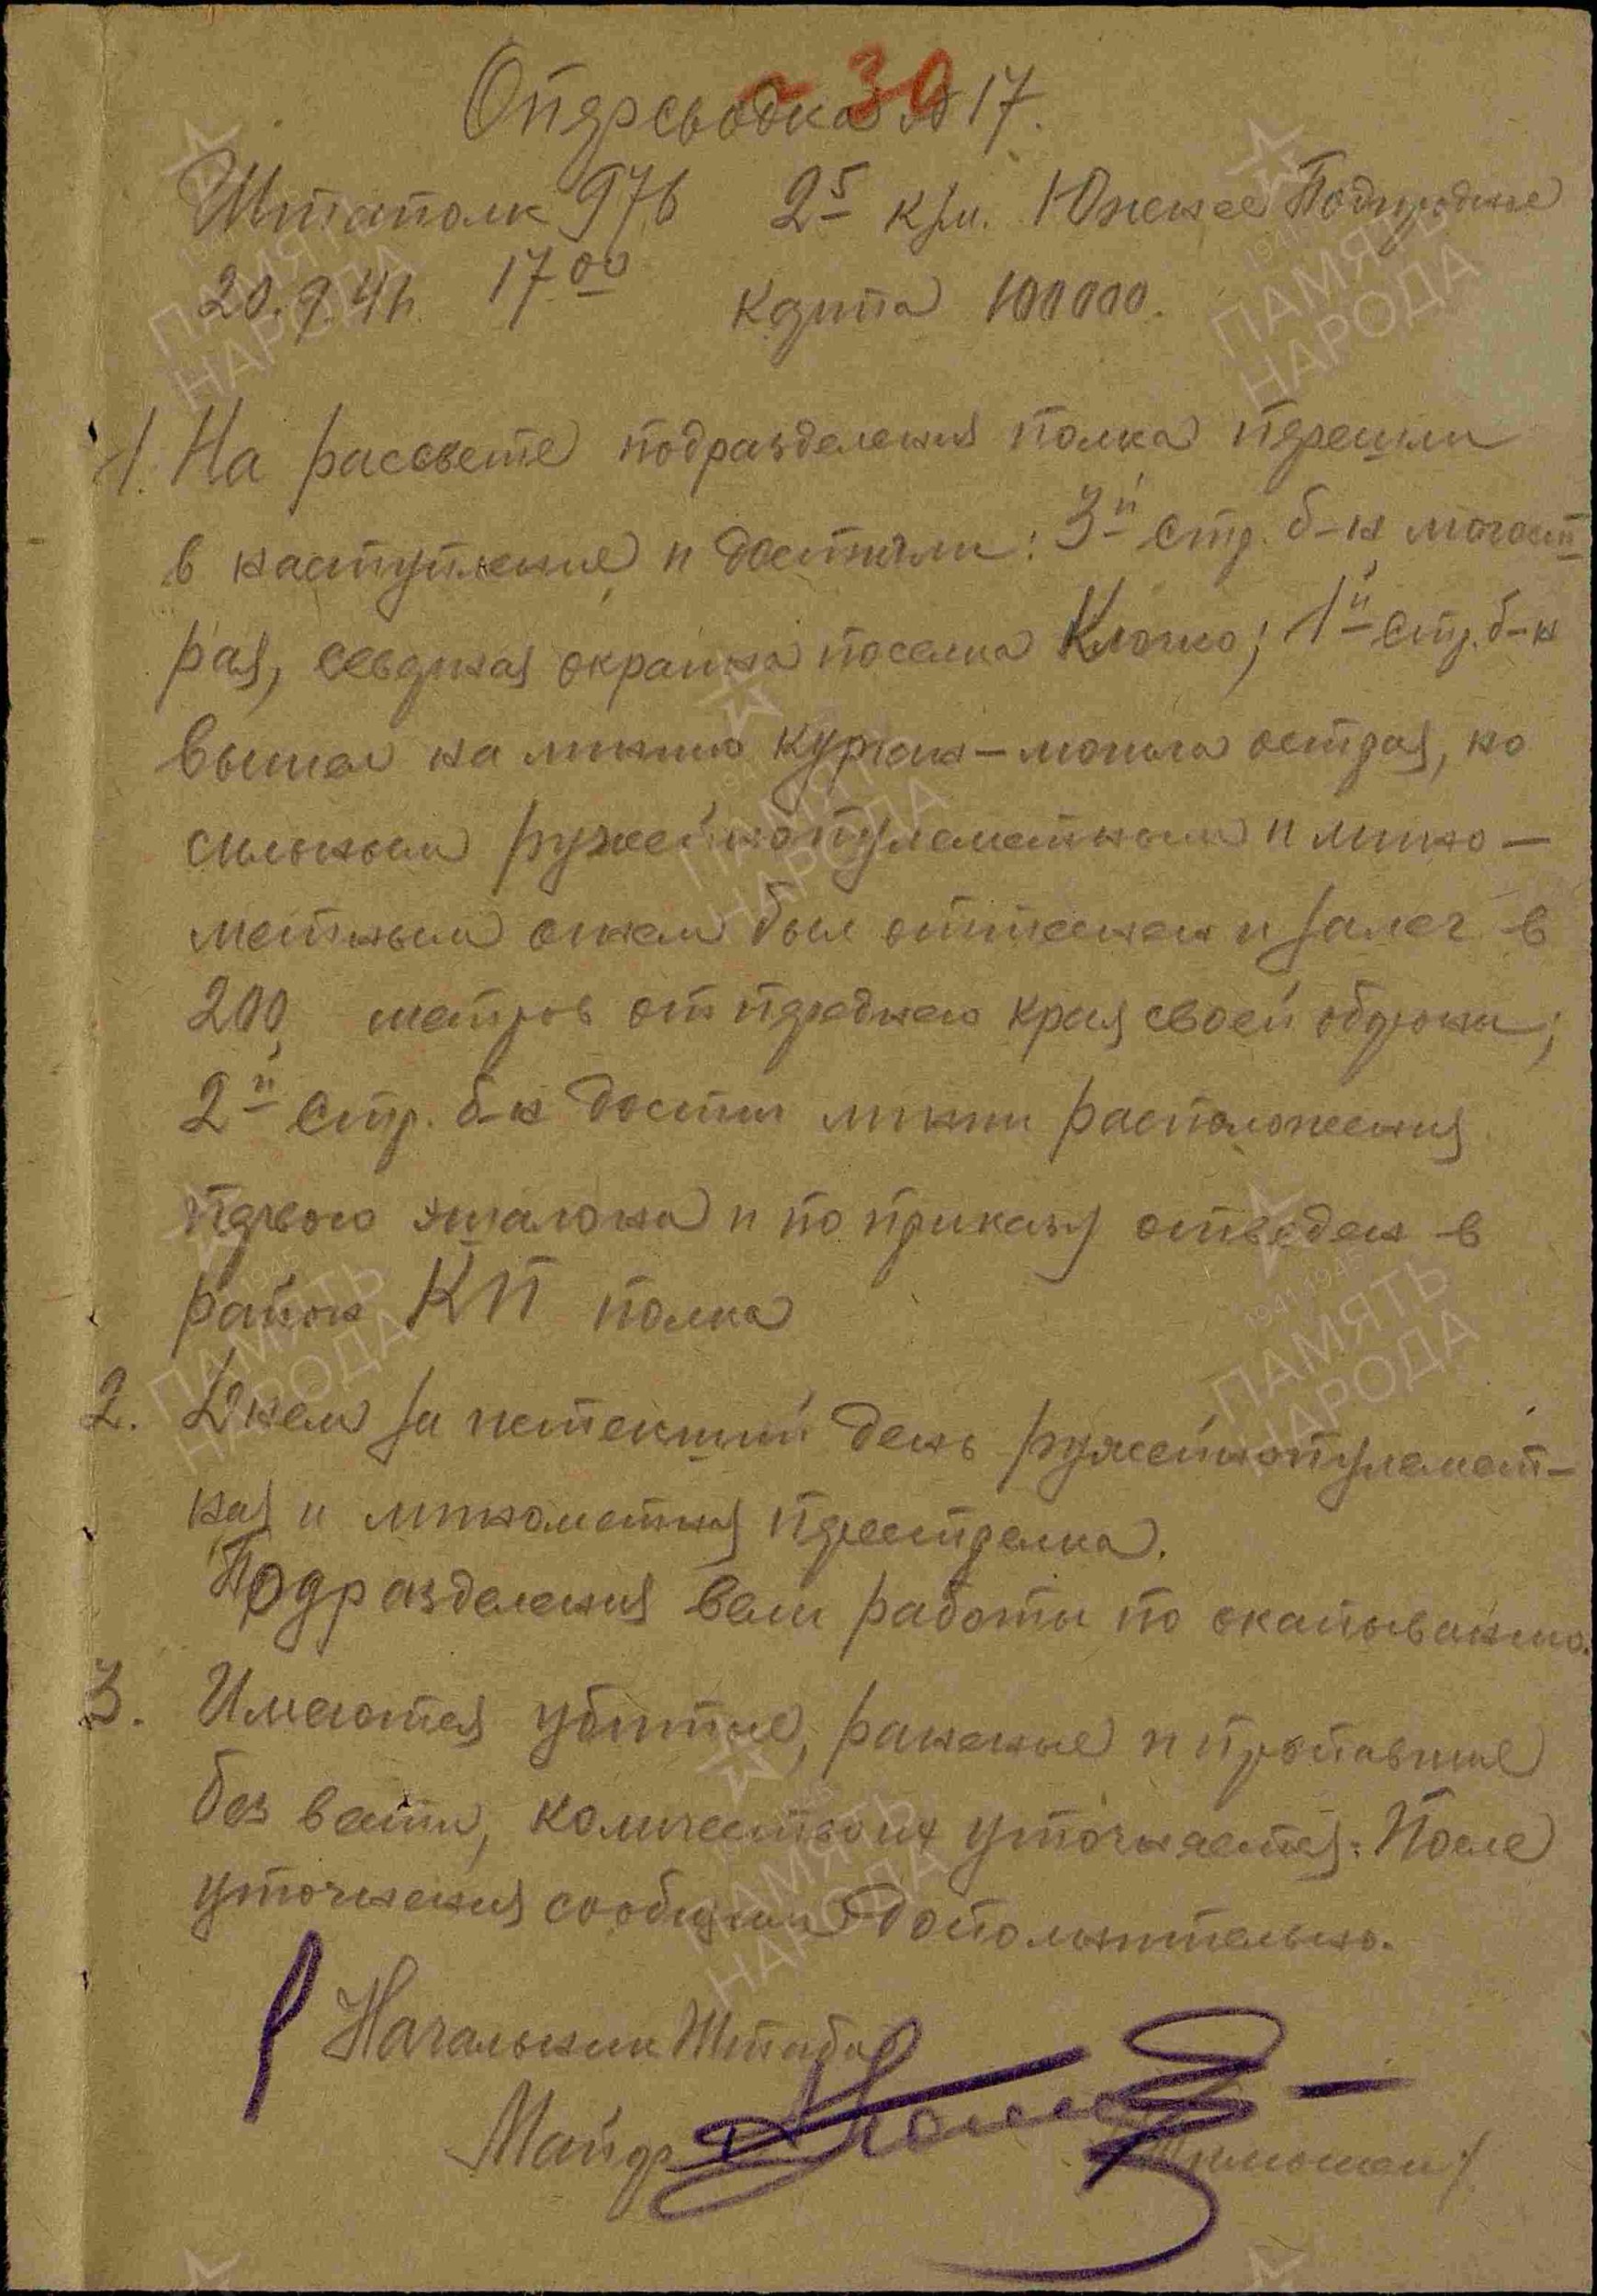 30
Оперсводка № 17.
Штаполк 976 2,5 клм. Южнее Подгородное
20.9.41г. 17 00 карта 100000.
1. На рассвете подразделения полка перешли
в наступление и достигли: 3й стр. б-н мог. ост-
рая, северная окраина поселка Клочко; 1й стр. б-н
вышел на линию курган-могила острая, но
сильным ружейнопулеметным и мино-
метным огнем был оттеснен и залег в
200 метров от переднего края своей обороны;
2й стр. б-н достиг линии расположения
первого эшалона и по приказу отведен в
район КП полка
2. Днем за истекший день ружейнопулемет-
ная и минометная перестрелка.
Подразделения вели работы по окапыванию.
3. Имеются убитые, раненые и пропавшие
без вести, количество их уточняется. После
уточнения сообщим дополнительно.
Начальник Штаба
Майор
ПАМЯТЬ НАРОДА
1941-1945